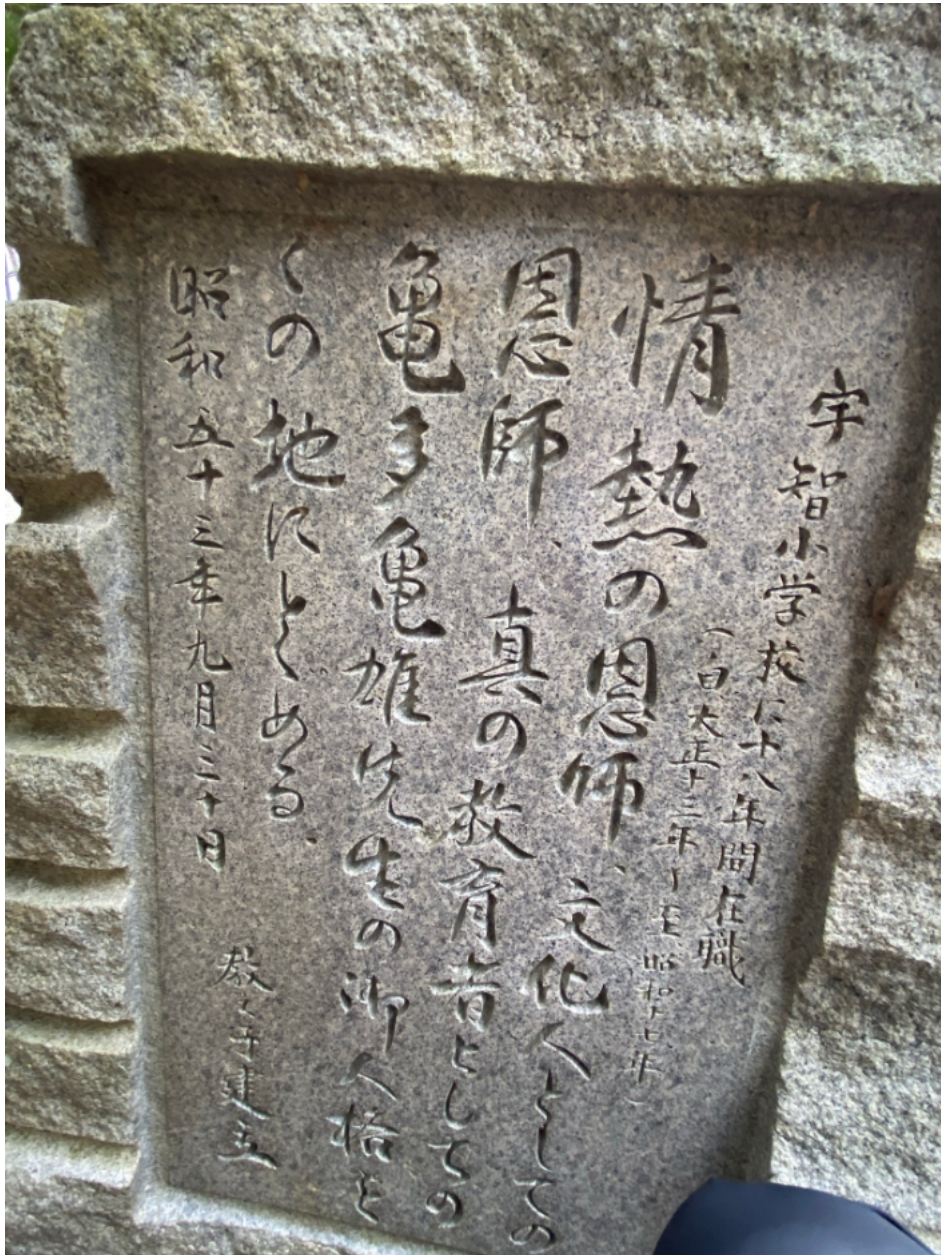 宇智小学校に十八年間在職
(自、大正十三年~至、昭和十七年)
情熱の恩師、文化人としての
恩師、真の教育者としての
亀多亀雄先生の御人格を
この地にとゞめる、
昭和五十三年九月三十日
教え子建立